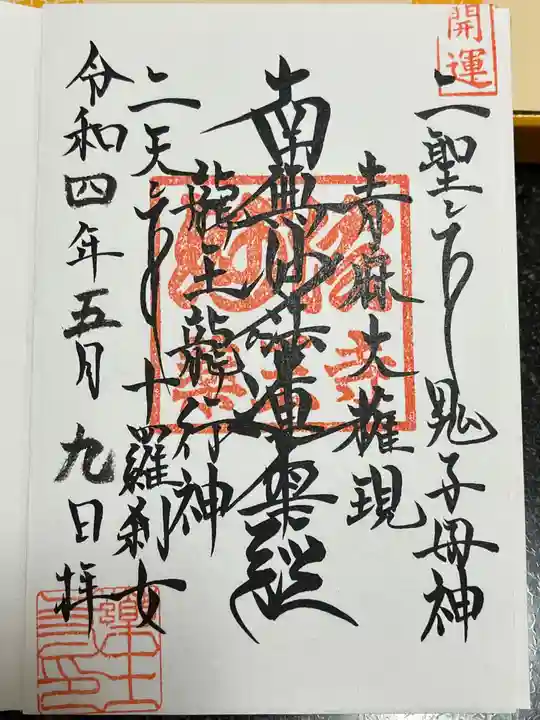 開運
二聖
鬼子母神
青麻大権現
南無妙法蓮華経
龍王龍行神
二天
十羅刹女
令和四年五月九日 拝